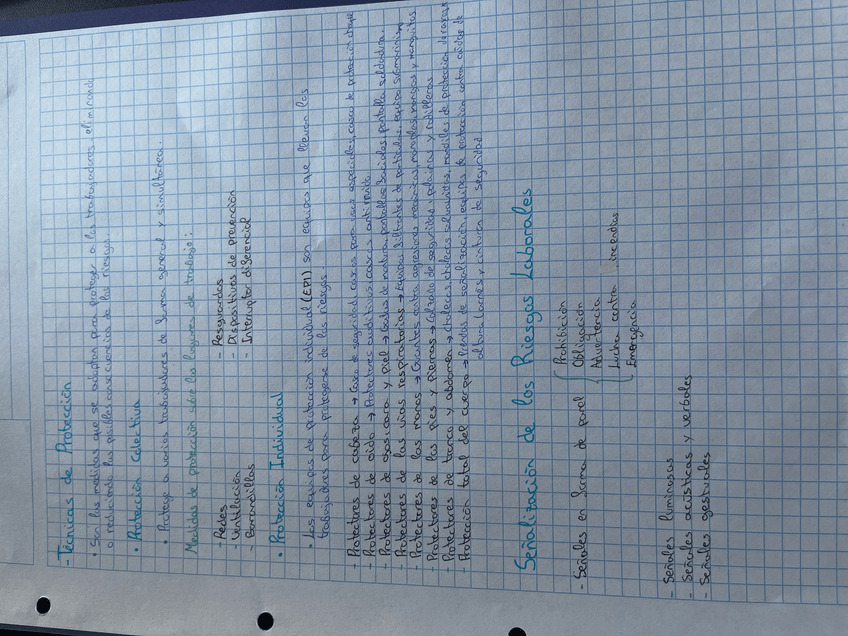 - Técnicas de Protección
• Son las medidas que se adoptan para proteger a los trabajadores, eliminando
o reduciendo las posibles consecuencias de los riesgos.
• Protección Colectiva
• Protege a varios trabajadores de forma general y simultánea.
Medidas de protección sobre los lugares de trabajo:
- Redes - Resguardos
- Ventilación - Dispositivos de prevención
- Barandillas - Interruptor diferencial
• Protección Individual
• Los equipos de protección individual (EPI) son equipos que llevan los
trabajadores para protegerse de los riesgos
- Protectores de cabeza → Casco de seguridad, cascos para usos especiales, casco de protección choque
- Protectores de oido → Protectores auditivos, cascos antirruido
- Protectores de ojos, cara y piel → Gafas de montura, pantallas faciales, pantalla soldadura.
- Protectores de las vias respiratorias → Equipos filtrantes de particulas, equipo submarinismo
- Protectores de las manos → Guantes contra agresiones mecánicas, manoplas, mangas y manguitos
- Protectores de los pies y piernas → Calzado de seguridad, polainas y rodilleras
- Protectores de tronco y abdomen → chalecos, chalecos salvavidas, mandiles de protección
- Protección total del cuerpo → Prendas de señalización, equipos de protección contra caidas de
altura, arnes y cinturon de seguridad
Señalización de los Riesgos Laborales
- Señales en forma de panel { Prohibición
Obligación
Advertencia
Lucha contra incendios
Emergencia
- Señales luminosas
- Señales acústicas y verbales
- Señales gestuales